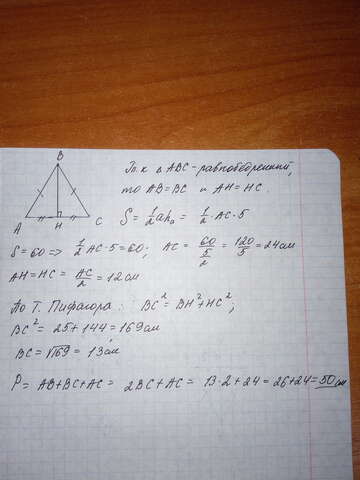 B
A H C
Т.к в ΔABC - равнобедренный,
то AB=BC и AH=HC.
S = 1/2 ah_a = 1/2 AC·5
S=60 => 1/2 AC·5=60; AC = 60/(5/2) = 120/5 = 24см
AH=HC= AC/2 = 12см
По Т. Пифагора: BC²=BH²+HC²;
BC²=25+144=169см
BC=√169=13см
P=AB+BC+AC= 2BC+AC= 13·2+24=26+24=50см